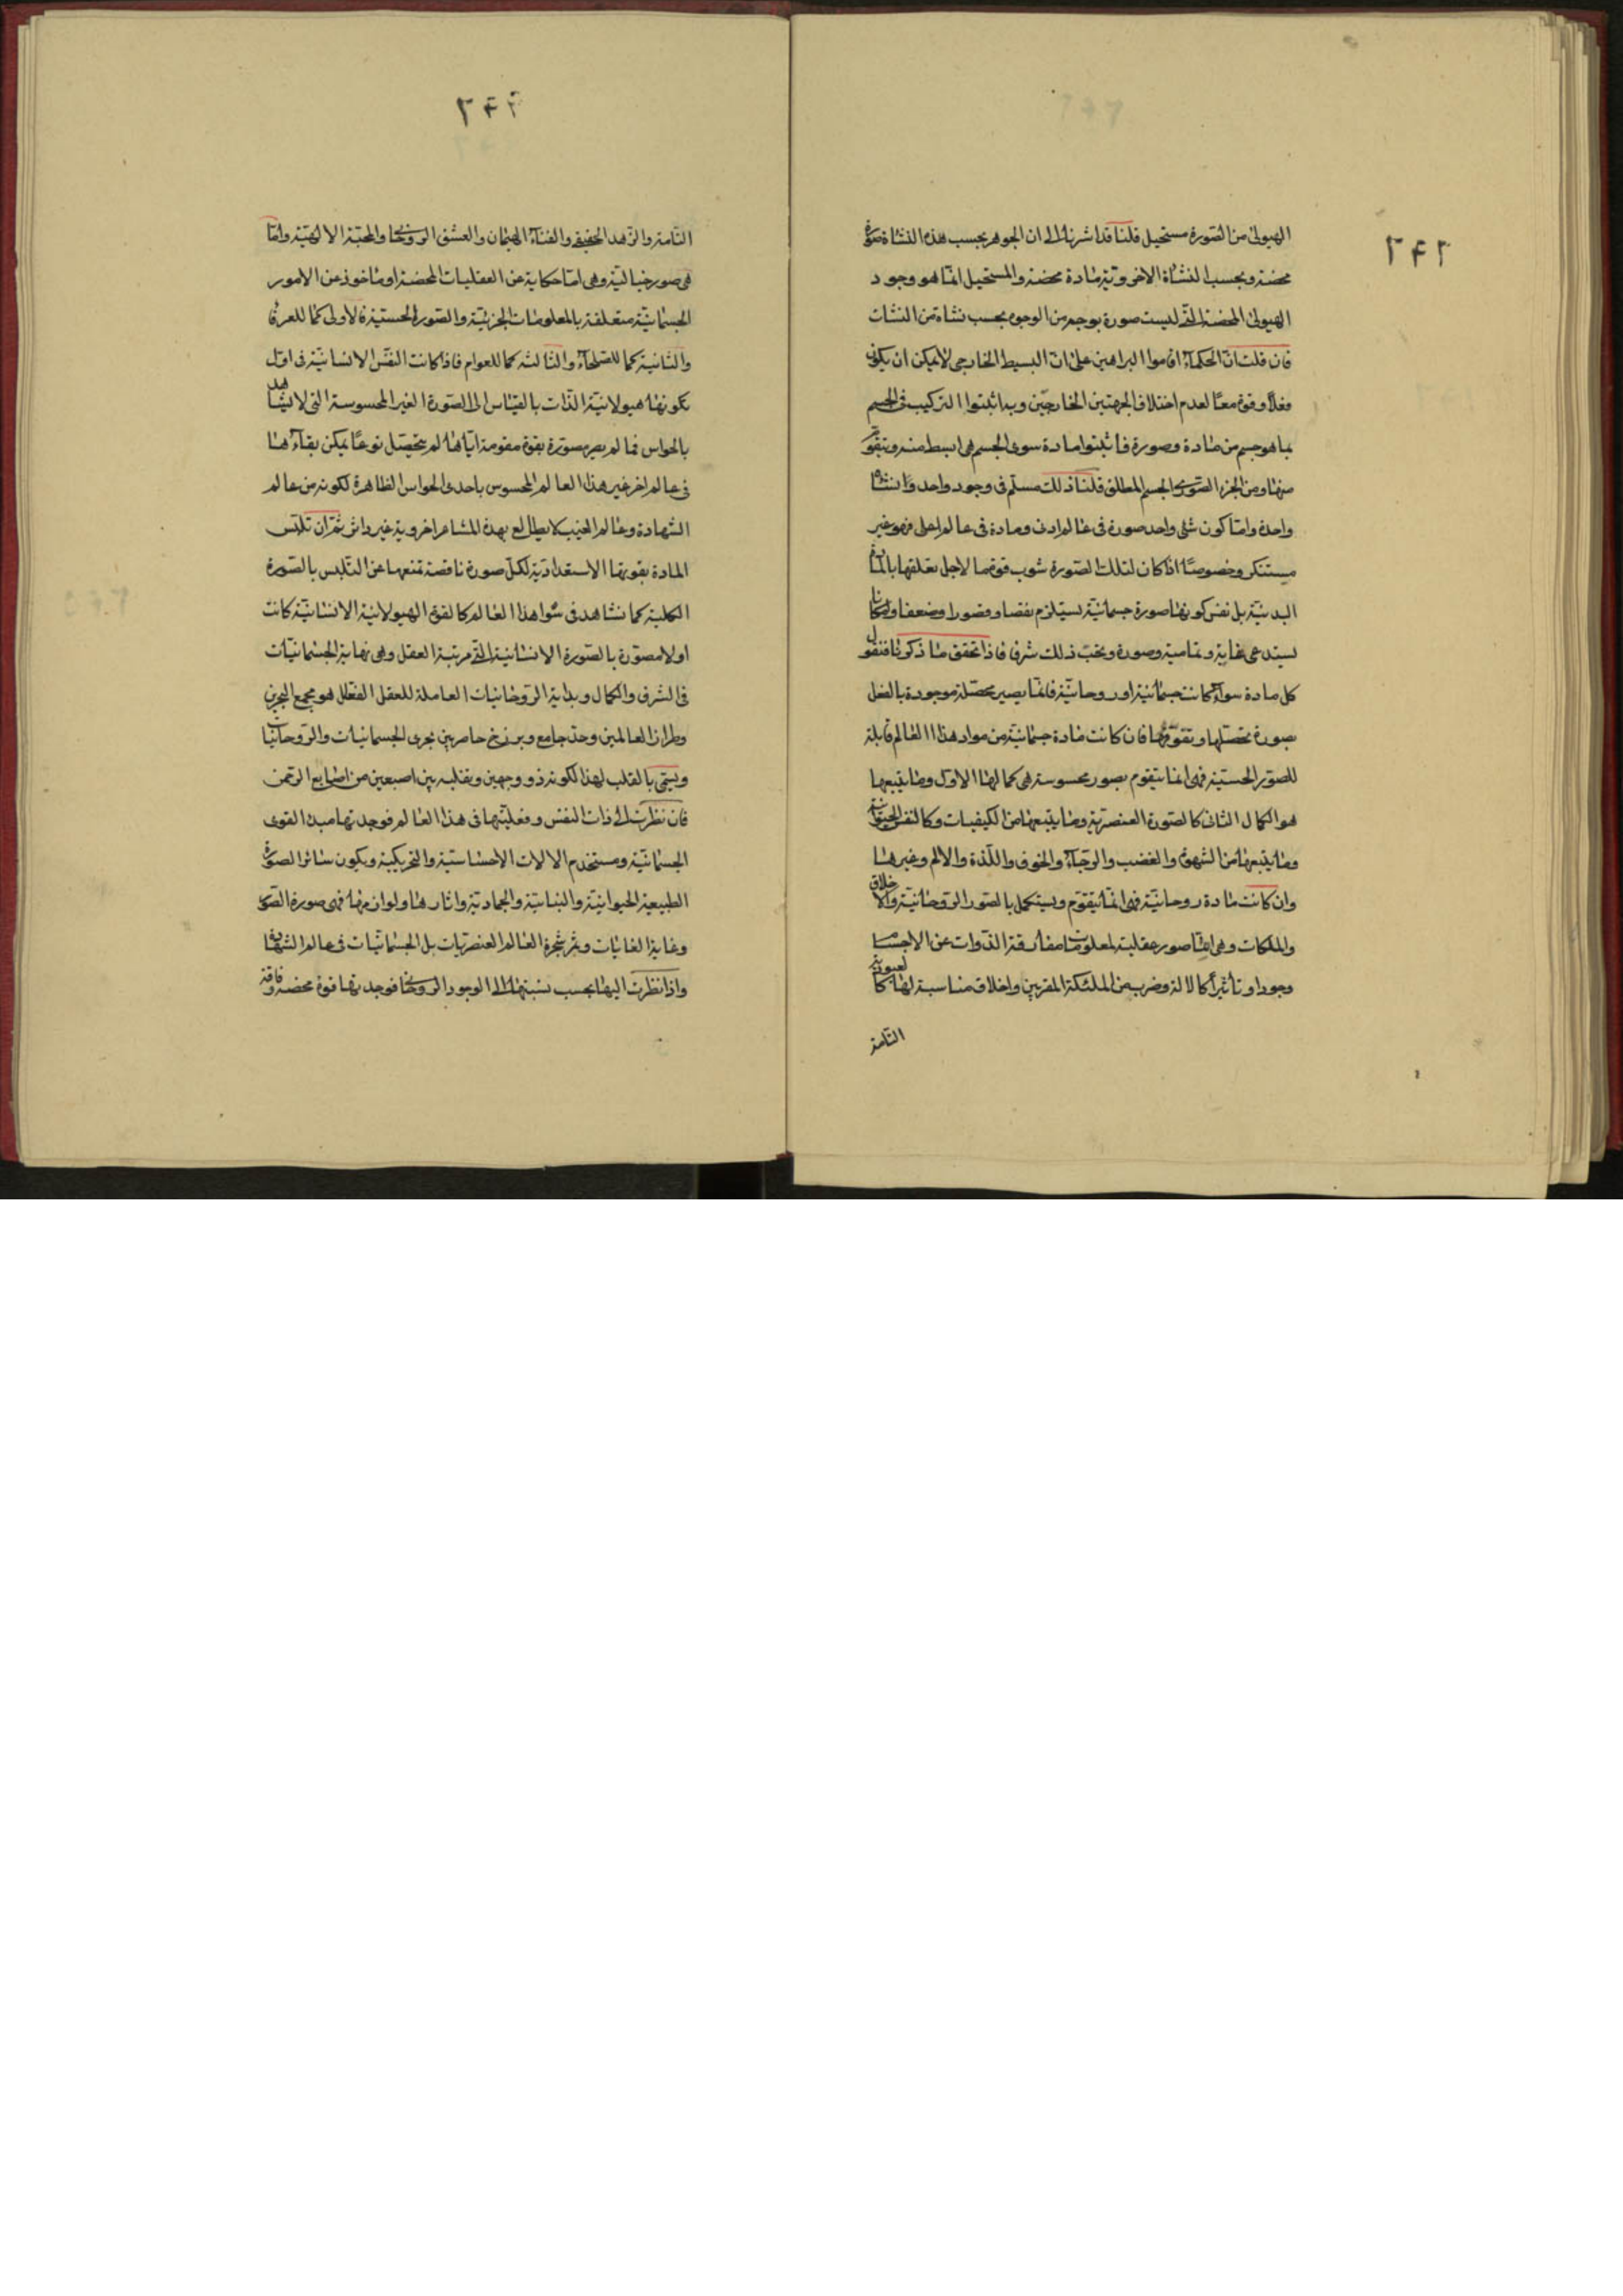 ٢٤٢
الهيولى من الصورة مستحيل قلنا قد اشرنا الى ان الجوهر بحسب هذه النشاة صورة
محضة وبحسب النشاة الاخروية مادة محضة والمستحيل انما هو وجود
الهيولى المحضة التى ليست صورة بوجه من الوجوه بحسب نشاة من النشات
فان قلت ان الحكماء اقاموا البراهين على ان البسيط الخارجى لا يمكن ان يكون
فعلا وقوة معا لعدم اختلاف الجهتين الخارجيين وبه اثبتوا التركيب فى الجسم
بما هو جسم من مادة وصورة فاثبتوا مادة سوى الجسم هى ابسط منه ويتقوم
منها ومن الجزء الصورى الجسم المطلق قلنا ذلك مسلم فى وجود واحد ونشاة
واحدة واما كون شئ واحد صورة فى عالم ادنى ومادة فى عالم اعلى فهو غير
مستنكر وخصوصا اذا كان لتلك الصورة شوب قوة ما لاجل تعلقها بالمادة
البدنية بل نفس كونها صورة جسمانية يستلزم نقصا وقصورا وضعفا وامكانا
يستدعى غاية وتمامية وصورة وتحت ذلك شرف فاذا تحقق ما ذكرنا فنقول
كل مادة سواء كانت جسمانية او روحانية فانما يصير محصلة موجودة بالفعل
بصورة تحصلها وتقومها فان كانت مادة جسمانية من مواد هذا العالم قابلة
للصور الحسية فهى انما يتقوم بصور محسوسة هى كمالها الاول وما يتبعها
هو الكمال الثانى كالصورة العنصرية وما يتبعها من الكيفيات وكالنفس الحيوانية
وما يتبعها من الشهوة والغضب والرجاء والخوف واللذة والالم وغيرها
وان كانت مادة روحانية فهى انما يتقوم ويستكمل بالصور الروحانية والاخلاق
والملكات وهى اما صور عقلية لمعلومات مفارقة الذوات عن الاجسام
وجودا وتاثيرا كالاله وضرب من الملئكة المقربين واخلاق مناسبة لها كالعبودية
التامة
٢٤٣
التامة والزهد الحقيقى والفناء الهيمان والعشق الروحانى والمحبة الالهية واما
هى صور خيالية وهى اما حكاية عن العقليات المحضة او ماخوذ عن الامور
الجسمانية متعلقة بالمعلومات الجزئية والصورة الحسية فالاولى كما للعرفاء
والثانية كما للصلحاء والثالثة كما للعوام فاذا كانت النفس الانسانية فى اول
تكونها هيولانية الذات بالقياس الى الصورة الغير المحسوسة التى لا يشاهد
بالحواس فما لم يصر مصورة بقوة مقومة اياها لم يتحصل نوعا يمكن بقاءها
فى عالم اخر غير هذا العالم المحسوس باحدى الحواس الظاهرة لكونه من عالم
الشهادة وعالم الغيب لا يطالع بهذه المشاعر اخروية غير داثر ثم ان تلبس
المادة بقوتها الاستعدادية لكل صورة ناقصة تمنعها عن التلبس بالصورة
الكلية كما نشاهد فى شواهد هذا العالم كالقوة الهيولانية الانسانية كانت
اولا مصورة بالصورة الانسانية التى مرتبة العقل وهى نهاية الجسمانيات
فى الشرف والكمال وبداية الروحانيات العاملة للعقل الفعال هو مجمع البحرين
وطراز العالمين وحد جامع وبرزخ حاصر بين بحرى الجسمانيات والروحانيات
ويسمى بالقلب لهذا لكونه ذو وجهين وتقلبه بين اصبعين من اصابع الرحمن
فان نظرت الى ذات النفس وفعليتها فى هذا العالم فوجدتها مبدا القوى
الجسمانية ومستخدم الالات الاحساسية والتحريكية ويكون سائر الصورة
الطبيعية الحيوانية والنباتية والجمادية واثارها ولوازمها فهى صورة الصور
وغاية الغايات وثمر شجرة العالم العنصريات بل الجسمانيات فى عالم الشهادة
واذا نظرت اليها بحسب نسبتها الى الوجود الروحانى فوجدتها قوة محضة وفاقة